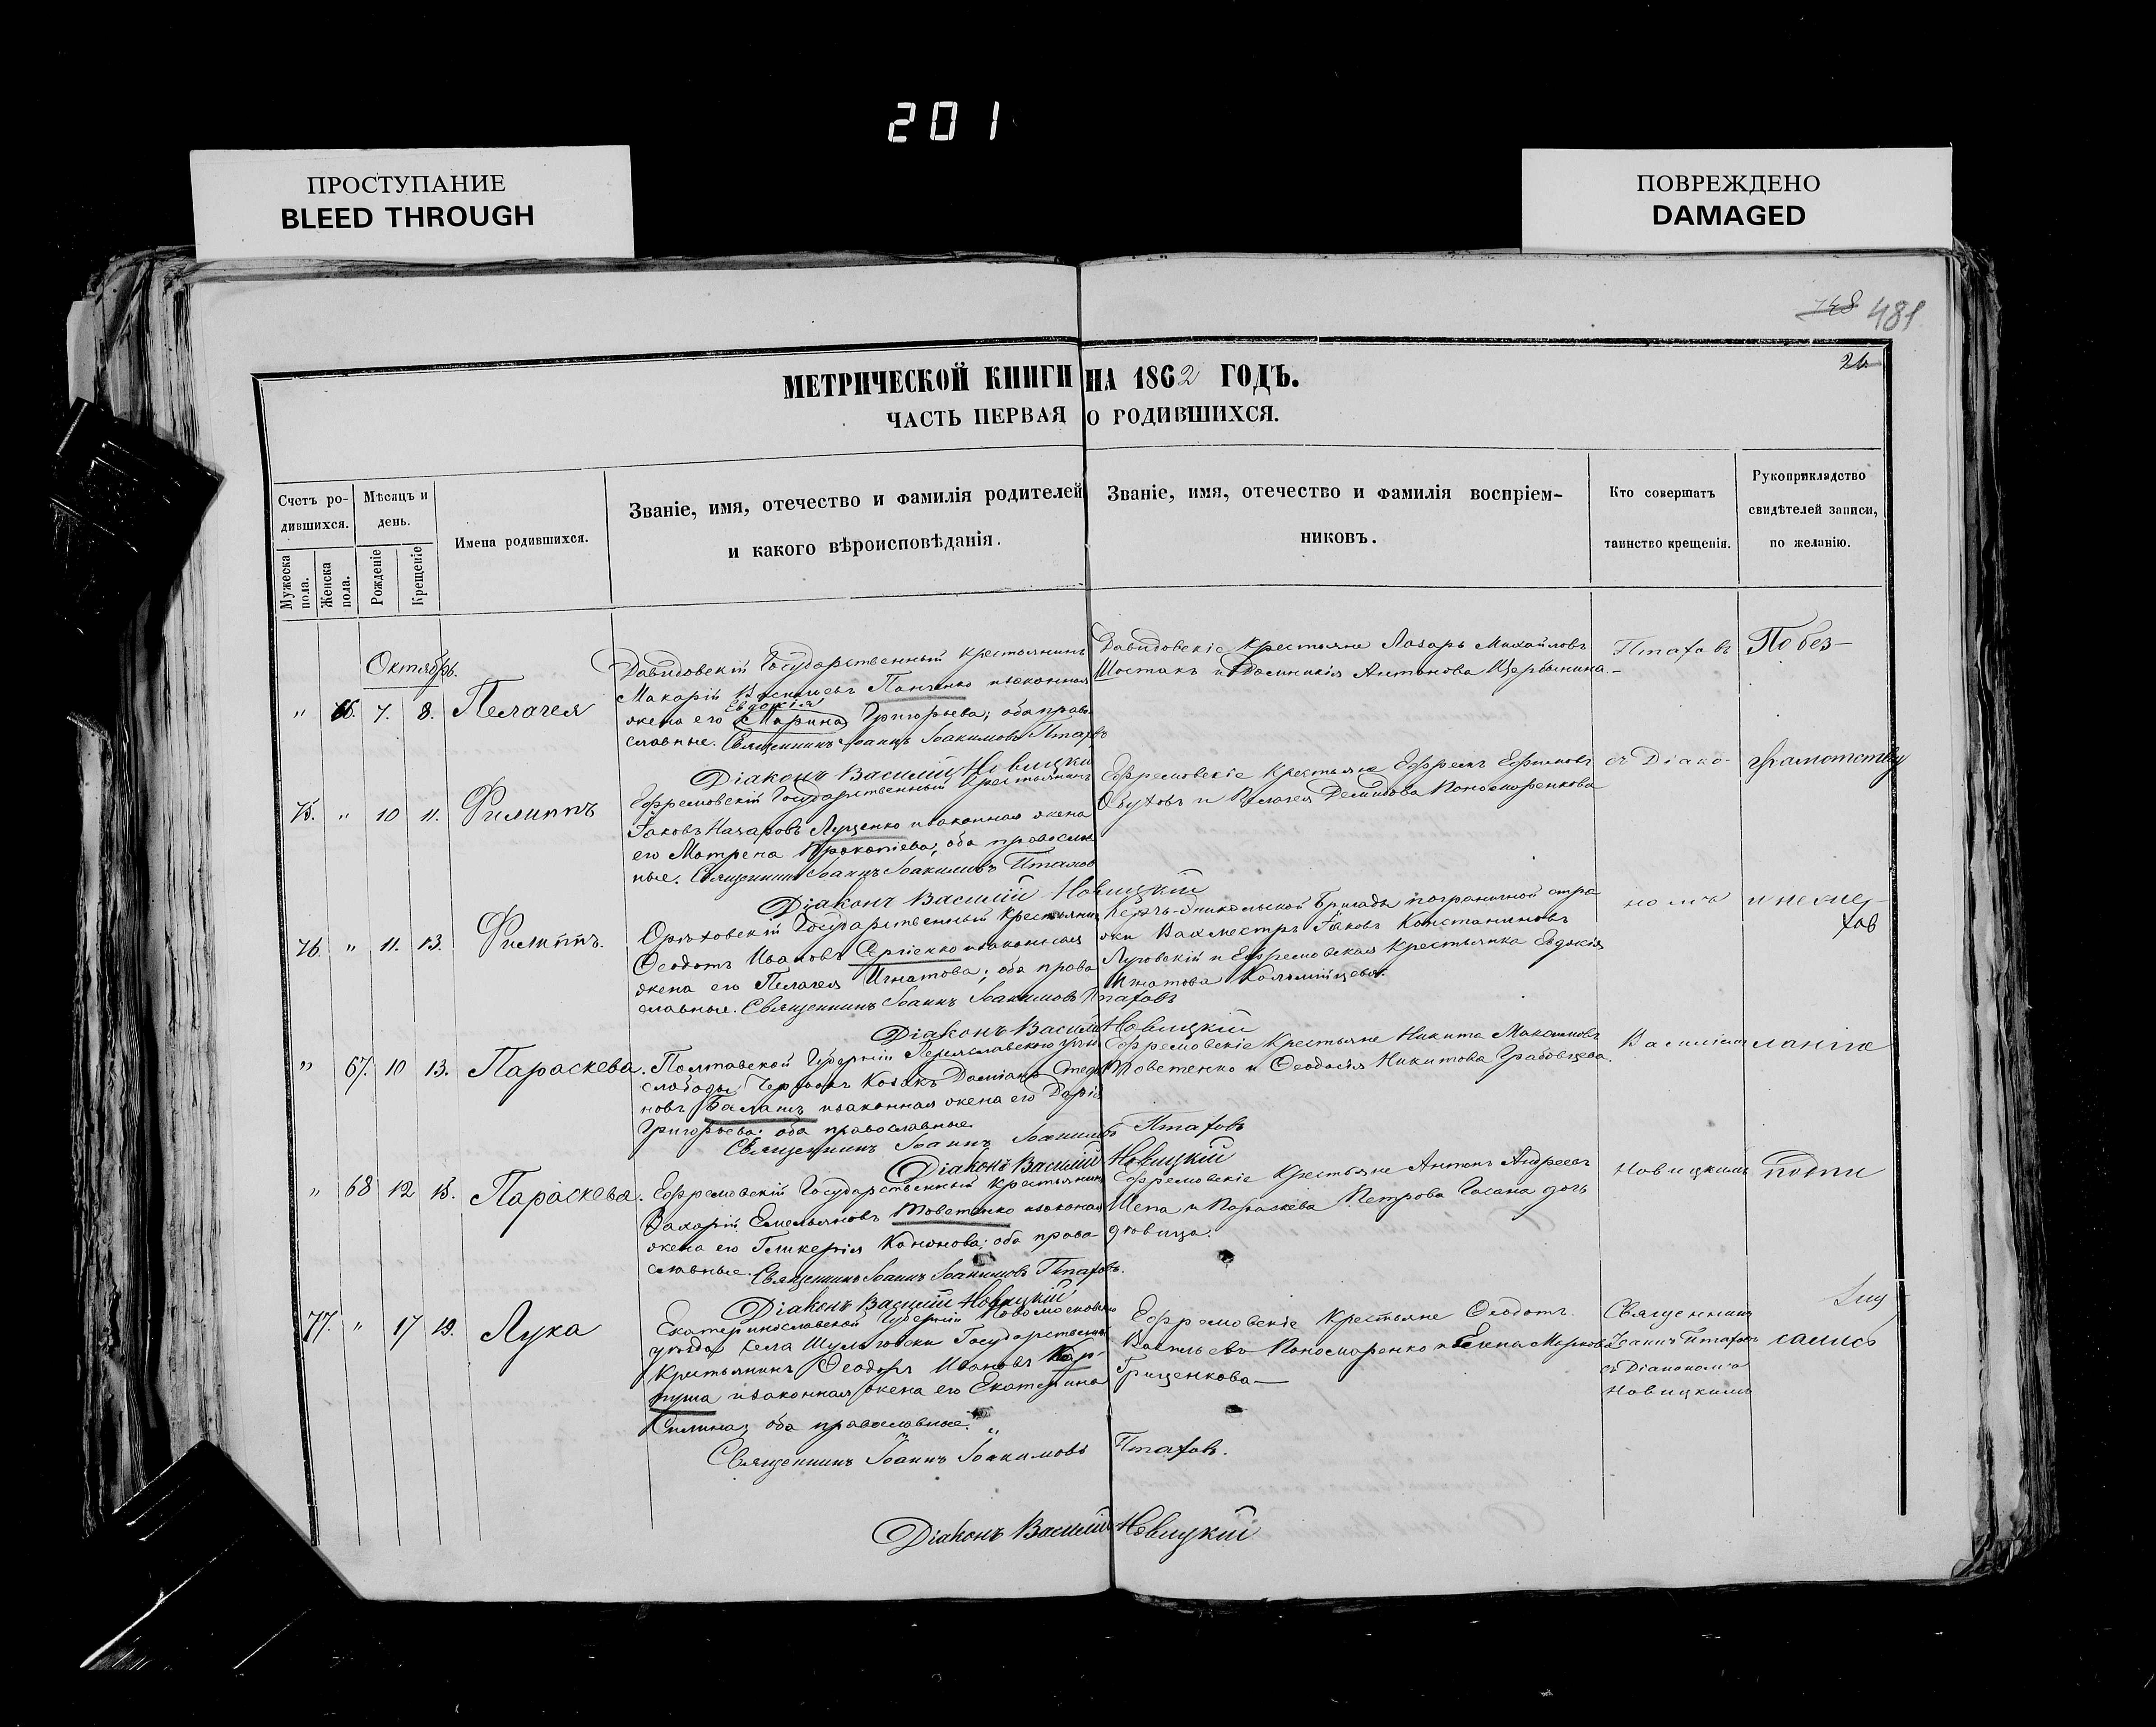 201
ПРОСТУПАНИЕ
BLEED THROUGH
ПОВРЕЖДЕНО
DAMAGED
748 481
26
МЕТРИЧЕСКОЙ КНИГИ НА 1862 ГОДЪ.
ЧАСТЬ ПЕРВАЯ О РОДИВШИХСЯ.
Счетъ родившихся.
Мѣсяцъ и день.
Мужеска пола.
Женска пола.
Рожденіе
Крещеніе
Имена родившихся.
Званіе, имя, отечество и фамилія родителей
и какого вѣроисповѣданія.
Званіе, имя, отечество и фамилія воспріем-
никовъ.
Кто совершатъ
таинство крещенія.
Рукоприкладство
свидѣтелей записи,
по желанію.
Октябрь.
" 66. 7. 8. Пелагея
Давидовскій Государственный крестьянинъ
Макарій Васильевъ Панченко и законная
Евдокія
жена его Марина Григорьева; оба право-
славные. Священникъ Іоаннъ Іоакимовъ Птаховъ
Діаконъ Василій Новицкій
Давидовскіе крестьяне Лазарь Михайловъ
Шостакъ и Домникія Антонова Щербинина.
Птаховъ
По без-
75. " 10 11. Филиппъ
Ефремовскій Государственный крестьянинъ
Іаковъ Назаровъ Луценко и законная жена
его Матрена Прокопіева, оба православ
ные. Священникъ Іоаннъ Іоакимовъ Птахов
Діаконъ Василій Новицкій
Ефремовскіе крестьяне Ефремъ Ефимовъ
Обуховъ и Пелагея Демидова Пономаренкова
съ Діако-
грамотству
76. " 11. 13. Филиппъ.
Орѣховскій Государственный крестьянинъ
Ѳеодотъ Ивановъ Сергіенко и законная
жена его Пелагея Игнатова; оба право
славные. Священникъ Іоаннъ Іоакимовъ Птаховъ
Діаконъ Василій Новицкій
бригады пограничной стра
жи Вахмистръ Іаковъ Константиновъ
Луговскій и Ефремовская крестьянка Евдокія
Игнатова
номъ
" 67. 10 13. Параскева.
Полтавской Губерніи Переяславскаго уѣзд
слободы Козакъ Даміанъ
новъ Балашъ и законная жена его Дарія
Григорьева; оба православные.
Священникъ Іоаннъ Іоакимовъ Птаховъ
Діаконъ Василій Новицкій
Ефремовскіе крестьяне Никита Максимовъ
и Ѳеодосія Никитова
Василіем
" 68 12 15. Параскева.
Ефремовскій Государственный крестьянинъ
Захарій Емельяновъ Товстенко и законная
жена его Гликерія Кононова; оба право-
славные. Священникъ Іоаннъ Іоакимовъ Птаховъ.
Діаконъ Василій Новицкій
Ефремовскіе крестьяне Антонъ Андреевъ
Шепа и Параскева Петрова дочь
дювица.
Новицкимъ
77. " 17 19. Лука
Екатеринославской Губерніи Новомосковска
уѣзда села Шульговки Государственный
Крестьянинъ Ѳеодоръ Ивановъ Кар-
пуша и законная жена его Екатерина
Силина; оба православные.
Священникъ Іоаннъ Іоакимовъ Птаховъ.
Діаконъ Василій Новицкій
Ефремовскіе Крестьяне Ѳеодотъ
Васильевъ Пономаренко и Елена Маркова
Грищенкова
Священникъ
Іоаннъ Птаховъ
съ Діакономъ
Новицкимъ